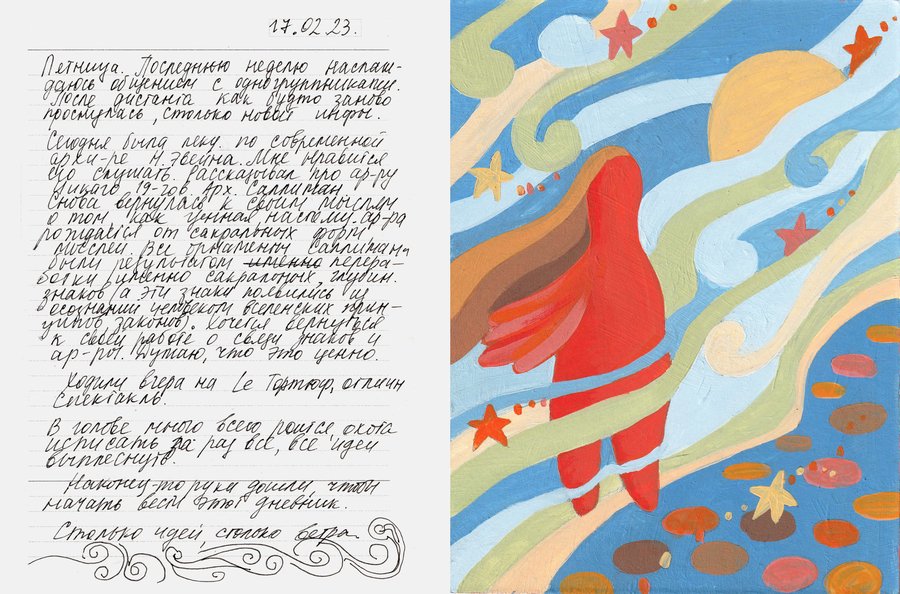 17.02.23.
Пятница. Последнюю неделю наслаж-
даюсь общением с одногруппниками.
После дистанта как будто заново
проснулась, столько новой инфы.
Сегодня была лекц. по современной
архи-ре Н. Эвейна. Мне нравится
его слушать. Рассказывал про ар-ру
Чикаго 19-гов. Арх. Салливан
Снова вернулась к своим мыслям
о том, как ценная ар-ра
рождается от сакральных форм,
мыслей. Все орнаменты Салливана
были результатом именно перера-
ботки именно сакральных, глубин.
знаков (а эти знаки появились из
осознания человеком вселенских прин-
ципов, законов). Хочется вернуться
к своей работе о связи знаков и
ар-ры. Думаю, что это ценно.
Ходили вчера на Le Тартюф, отличн
спектакль.
В голове много всего роится, охота
исписать за раз всё, все идеи
выплеснуть.
Наконец-то руки дошли, чтобы
начать вести этот дневник.
Столько идей, столько ветра